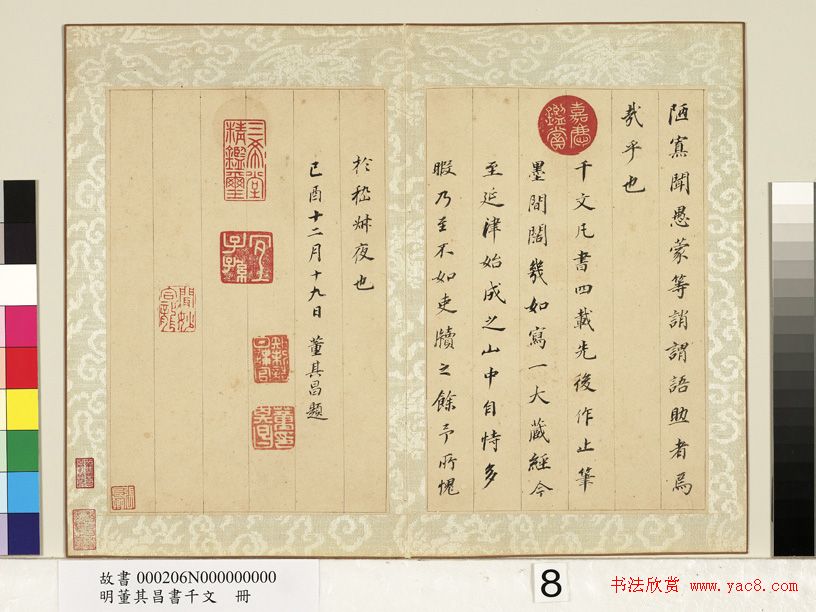 陋寡聞愚蒙等誚謂語助者焉
哉乎也
千文凡書四載先後作止筆
墨間闊幾如寫一大藏經今
至延津始成之山中自恃多
暇乃至不如吏牘之餘予所愧
於嵇叔夜也
己酉十二月十九日 董其昌題
嘉慶鑑賞
三希堂精鑑璽
宜子孫
故書 000206N000000000
明董其昌書千文 冊
8
书法欣赏 www.yac8.com